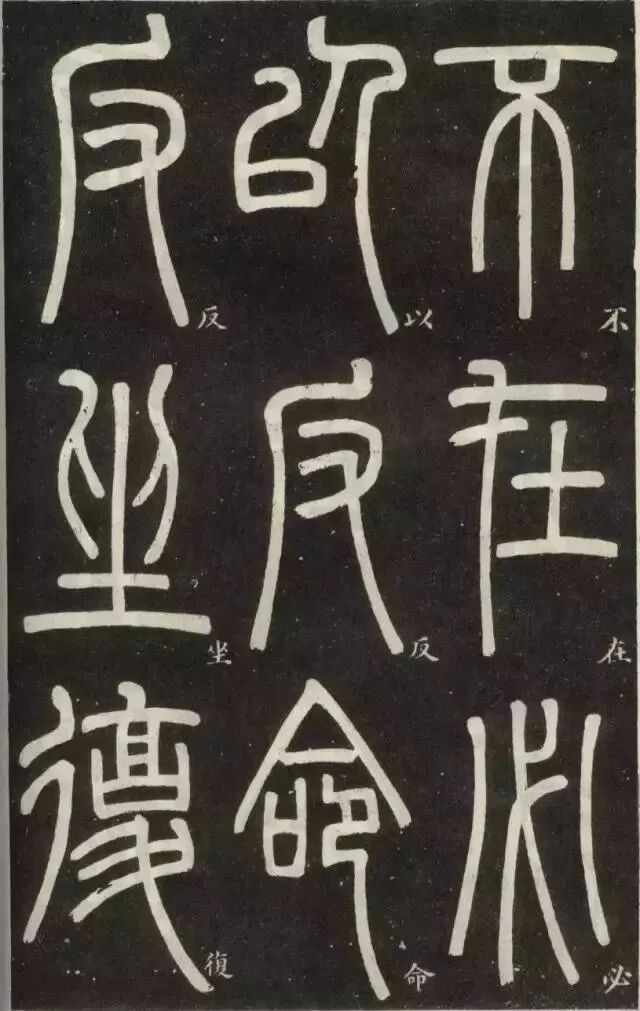 不在必
以反命
反坐復